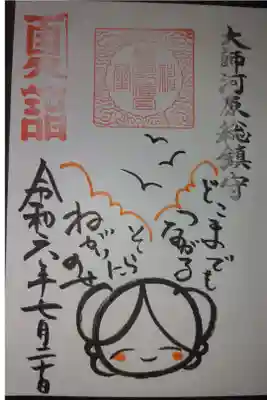 大師河原総鎮守
どこまでも
つながる
そらに
ねがいのせ
夏詣
令和六年七月二十日